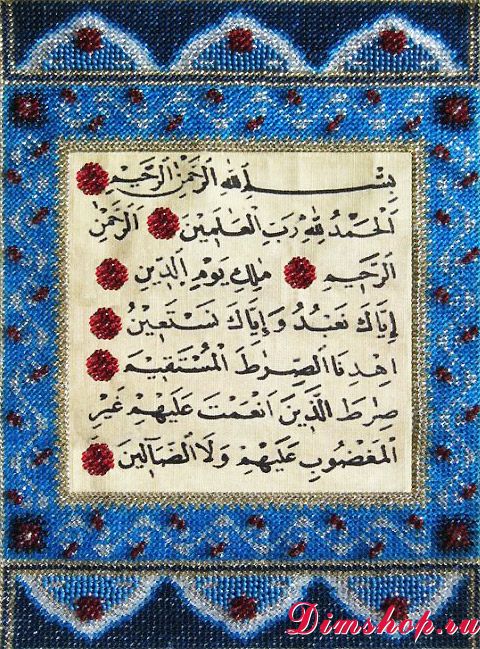 بِسْمِ اللهِ الرَّحْمٰنِ الرَّحِيمِ
اَلْحَمْدُ لِلّٰهِ رَبِّ الْعَالَمِينَ اَلرَّحْمٰنِ
الرَّحِيمِ مَالِكِ يَوْمِ الدِّينِ
اِيَّاكَ نَعْبُدُ وَاِيَّاكَ نَسْتَعِينُ
اِهْدِنَا الصِّرَاطَ الْمُسْتَقِيمَ
صِرَاطَ الَّذِينَ اَنْعَمْتَ عَلَيْهِمْ غَيْرِ
الْمَغْضُوبِ عَلَيْهِمْ وَلَا الضَّالِّينَ
Dimshop.ru